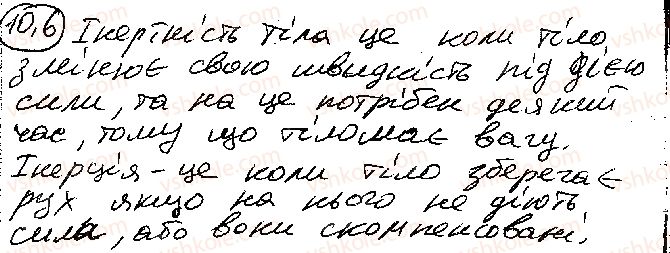 10,6 Інертність тіла це коли тіло
змінює свою швидкість під дією
сили, та на це потрібен деякий
час, тому що тіло має вагу.
Інерція - це коли тіло зберегає
рух якщо на нього не діють
сила, або вони скомпенсовані.